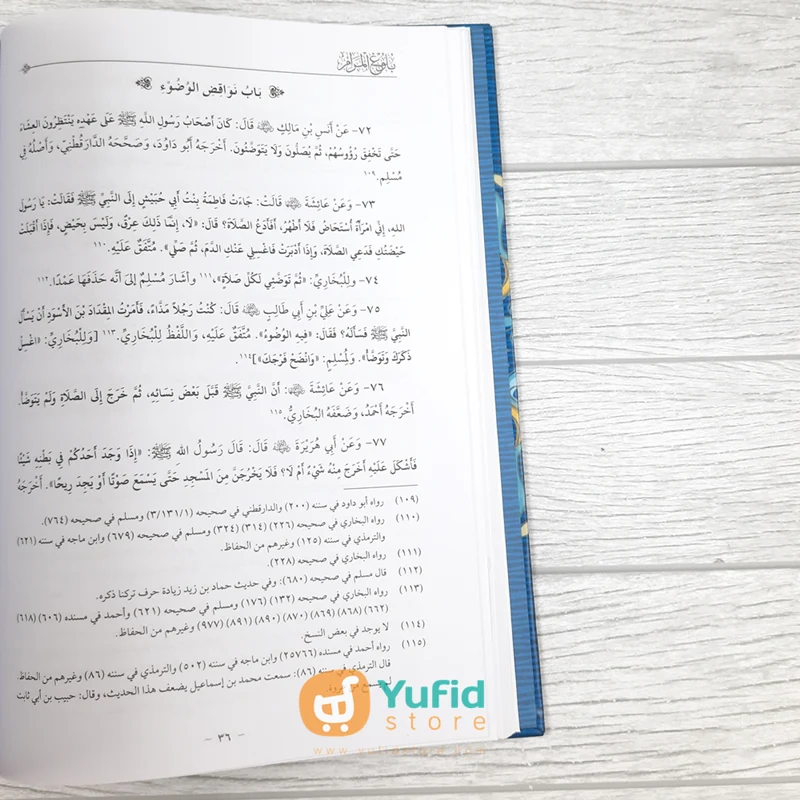 بلوغ المرام
باب نواقض الوضوء
٧٢- عَنْ أَنَسِ بْنِ مَالِكٍ ﵁ قَالَ: كَانَ أَصْحَابُ رَسُولِ اللَّهِ ﷺ عَلَى عَهْدِهِ يَنْتَظِرُونَ العِشَاءَ
حَتَّى تَخْفِقَ رُؤُوسُهُمْ، ثُمَّ يُصَلُّونَ وَلَا يَتَوَضَّئُونَ. أَخْرَجَهُ أَبُو دَاوُدَ، وَصَحَّحَهُ الدَّارَقُطْنِيّ، وَأَصْلُهُ فِي
مُسْلِمٍ.١٠٩
٧٣- وَعَنْ عَائِشَةَ ﵂ قَالَتْ: جَاءَتْ فَاطِمَةُ بِنْتُ أَبِي حُبَيْشٍ إِلَى النَّبِيِّ ﷺ فَقَالَتْ: يَا رَسُولَ
اللهِ، إِنِّي امْرَأَةٌ أُسْتَحَاضُ فَلَا أَطْهُرُ، أَفَأَدَعُ الصَّلَاةَ؟ قَالَ: «لَا، إِنَّمَا ذَلِكَ عِرْقٌ، وَلَيْسَ بِحَيْضٍ، فَإِذَا أَقْبَلَتْ
حَيْضَتُكِ فَدَعِي الصَّلَاةَ، وَإِذَا أَدْبَرَتْ فَاغْسِلِي عَنْكِ الدَّمَ، ثُمَّ صَلِّي». مُتَّفَقٌ عَلَيْهِ.١١٠
٧٤- وَلِلْبُخَارِيِّ: «ثُمَّ تَوَضَّئِي لِكُلِّ صَلَاةٍ»،١١١ وأَشَارَ مُسْلِمٌ إِلَى أَنَّه حَذَفَهَا عَمْدًا.١١٢
٧٥- وَعَنْ عَلِيِّ بْنِ أَبِي طَالِبٍ ﵁ قَالَ: كُنْتُ رَجُلاً مَذَّاءً، فَأَمَرْتُ المِقْدَادَ بْنَ الأَسْوَدِ أَنْ يَسْأَلَ
النَّبِيَّ ﷺ فَسَأَلَهُ؟ فَقَالَ: «فِيهِ الوُضُوءُ». مُتَّفَقٌ عَلَيْهِ، وَاللَّفْظُ لِلْبُخَارِيِّ.١١٣ [وَلِلْبُخَارِيِّ: «اغْسِلْ
ذَكَرَكَ وَتَوَضَّأْ». وَلِمُسْلِمٍ: «وَانْضَحْ فَرْجَكَ»]١١٤.
٧٦- وَعَنْ عَائِشَةَ ﵂: أَنَّ النَّبِيَّ ﷺ قَبَّلَ بَعْضَ نِسَائِهِ، ثُمَّ خَرَجَ إِلَى الصَّلَاةِ وَلَمْ يَتَوَضَّأْ.
أَخْرَجَهُ أَحْمَدُ، وَضَعَّفَهُ البُخَارِيُّ.١١٥
٧٧- وَعَنْ أَبِي هُرَيْرَةَ ﵁ قَالَ: قَالَ رَسُولُ اللهِ ﷺ: «إِذَا وَجَدَ أَحَدُكُمْ فِي بَطْنِهِ شَيْئًا
فَأَشْكَلَ عَلَيْهِ أَخَرَجَ مِنْهُ شَيْءٌ أَمْ لَا؟ فَلَا يَخْرُجَنَّ مِنَ المَسْجِدِ حَتَّى يَسْمَعَ صَوْتًا أَوْ يَجِدَ رِيحًا». أَخْرَجَهُ
(١٠٩) رواه أبو داود في سننه (٢٠٠) والدارقطني في سننه (٣/١٣١/١) ومسلم في صحيحه (٧٦٤).
(١١٠) رواه البخاري في صحيحه (٢٢٦) (٣١٤) (٣٢٤) ومسلم في صحيحه (٦٧٩) وابن ماجه في سننه (٦٢١)
والترمذي في سننه (١٢٥) وغيرهم من الحفاظ.
(١١١) رواه البخاري في صحيحه (٢٢٨).
(١١٢) قال مسلم في صحيحه (٦٨٠): وفي حديث حماد بن زيد زيادة حرف تركنا ذكره.
(١١٣) رواه البخاري في صحيحه (١٣٢) (١٧٦) ومسلم في صحيحه (٦٢١) وأحمد في مسنده (٦٠٦) (٦١٨)
(٦٦٢) (٨٦٨) (٨٦٩) (٨٧٠) (٨٩٠) (٨٩١) (٩٧٧) وغيرهم من الحفاظ.
(١١٤) لا يوجد في بعض النسخ.
(١١٥) رواه أحمد في مسنده (٢٥٧٦٦) وابن ماجه في سننه (٥٠٢) والترمذي في سننه (٨٦) وغيرهم من الحفاظ.
قال الترمذي في سننه (٨٦): سمعت محمد بن إسماعيل يضعف هذا الحديث، وقال: حبيب بن أبي ثابت
لم يسمع من عروة.
- ٣٦ -
Yufid
store
www.yufidstore.com